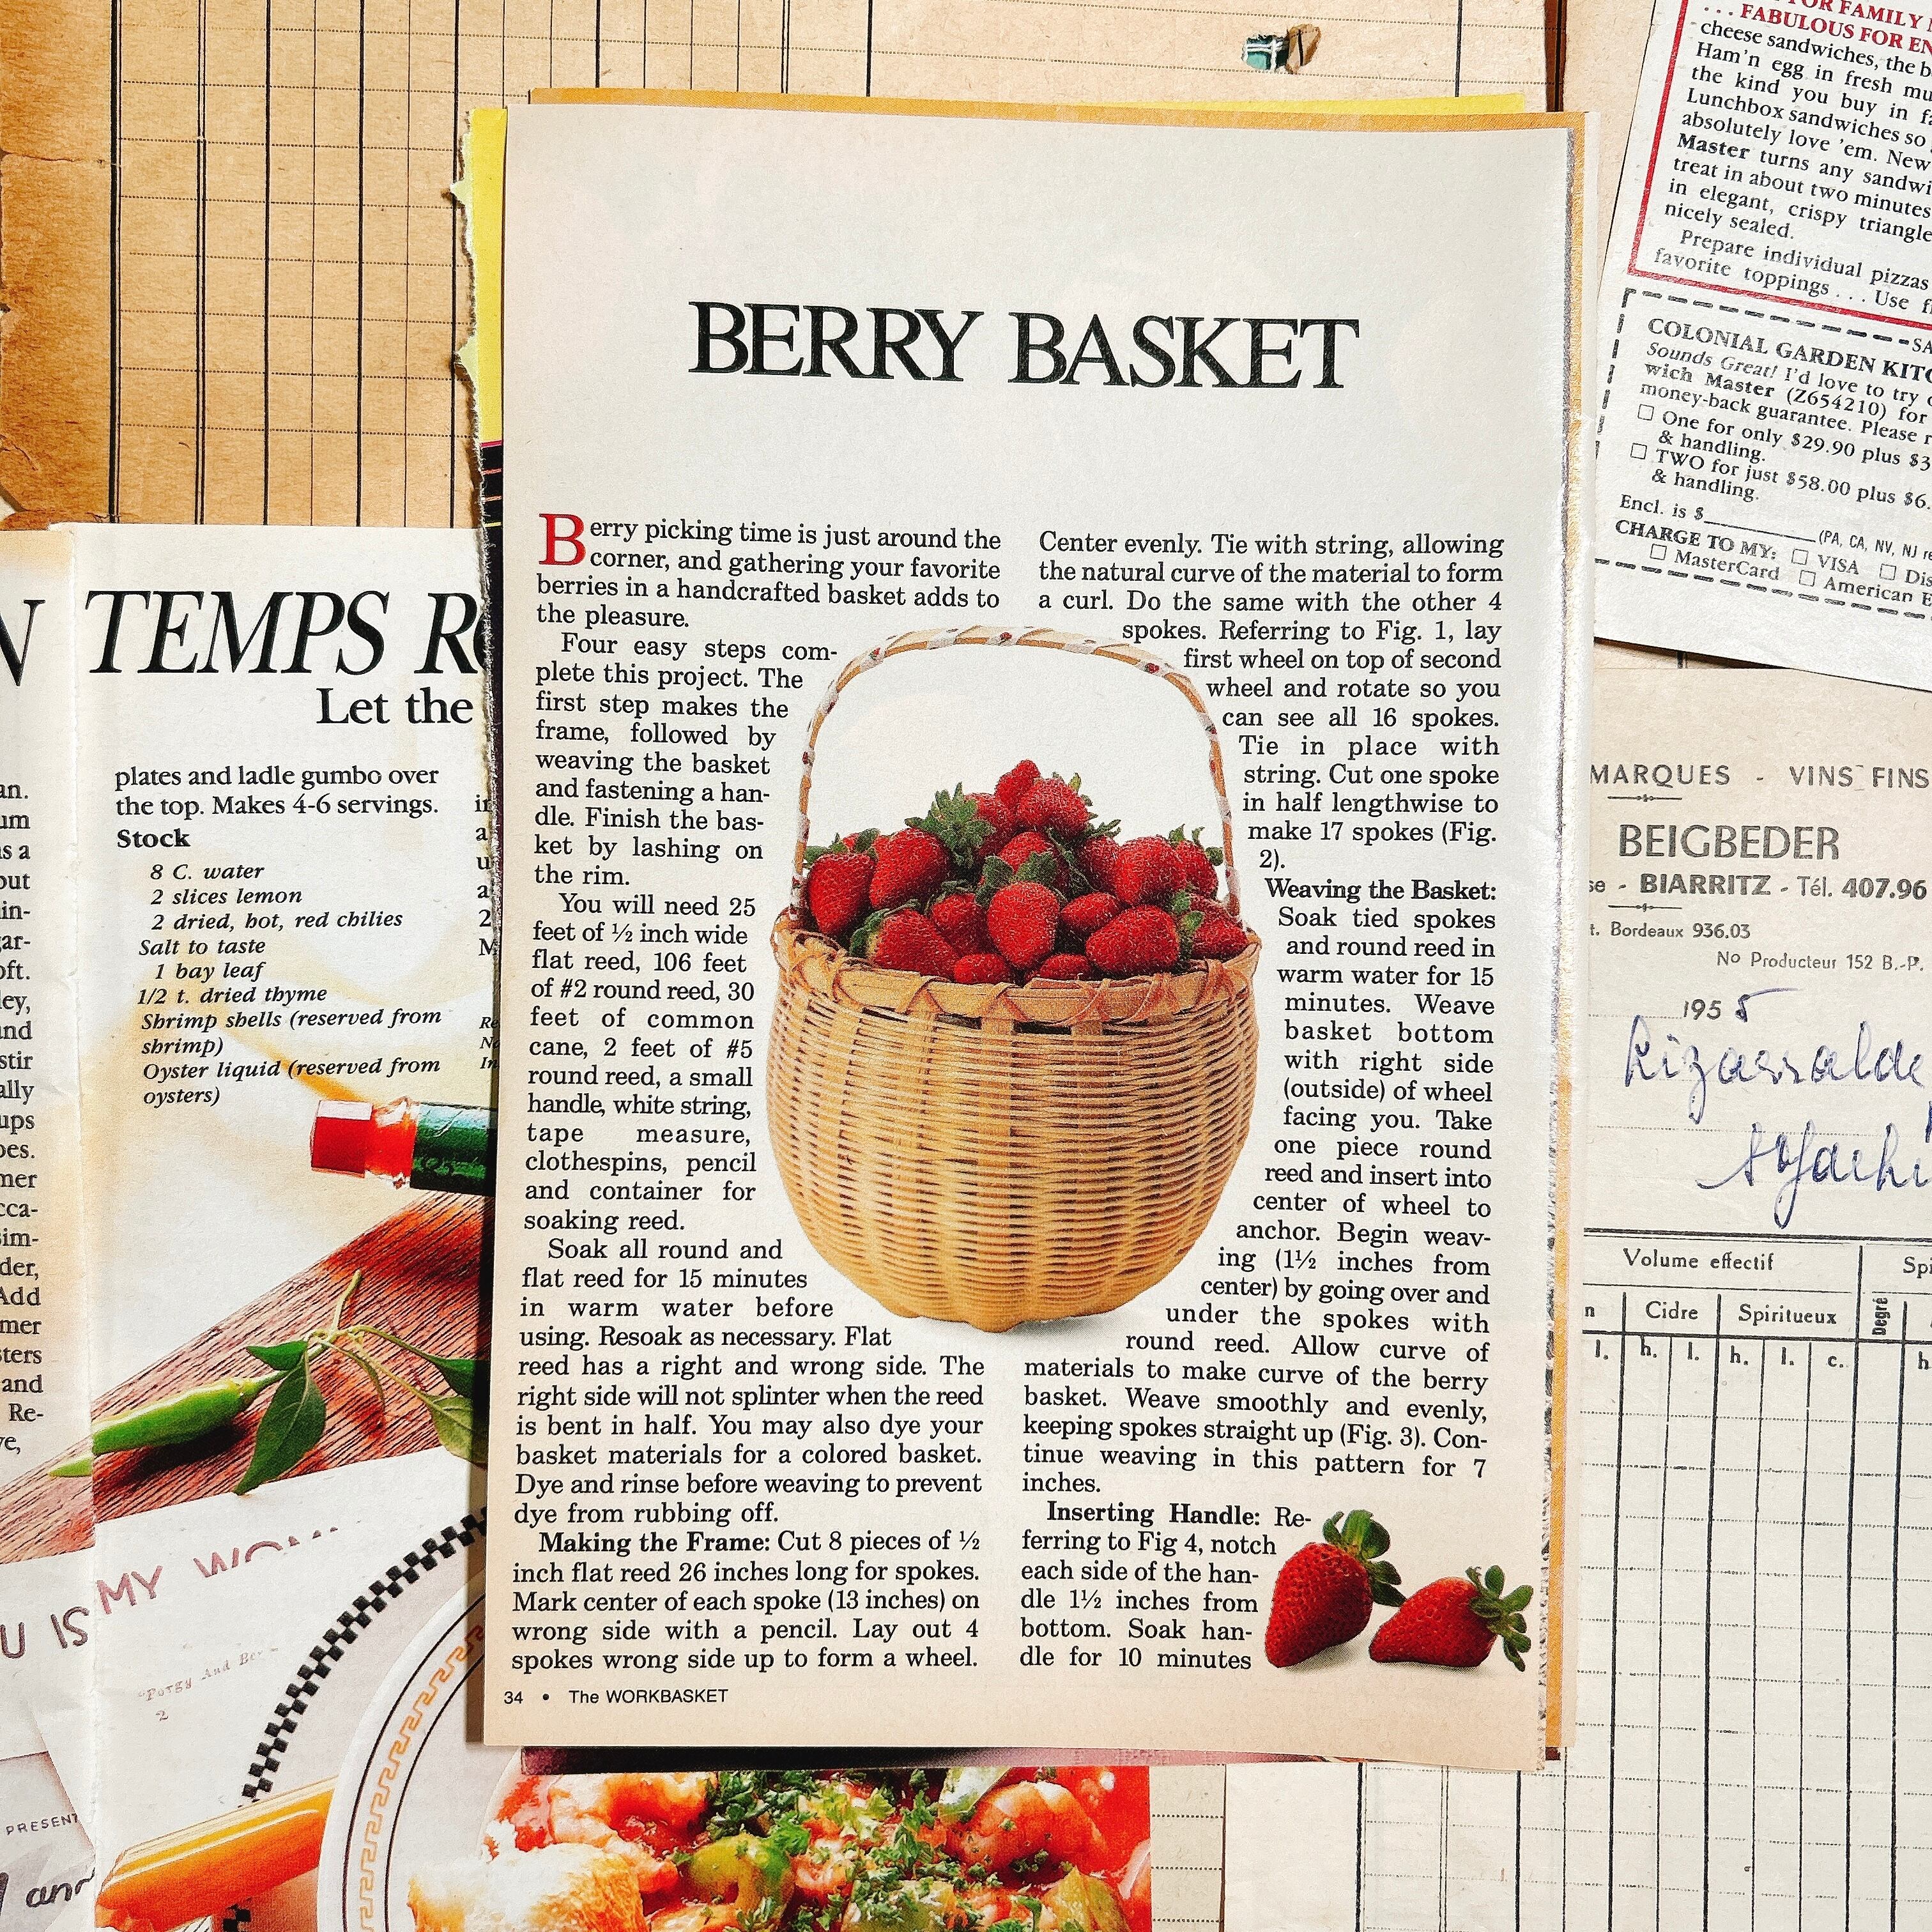 BERRY BASKET
Berry picking time is just around the
corner, and gathering your favorite
berries in a handcrafted basket adds to
the pleasure.
Four easy steps com-
plete this project. The
first step makes the
frame, followed by
weaving the basket
and fastening a han-
dle. Finish the bas-
ket by lashing on
the rim.
You will need 25
feet of ½ inch wide
flat reed, 106 feet
of #2 round reed, 30
feet of common
cane, 2 feet of #5
round reed, a small
handle, white string,
tape measure,
clothespins, pencil
and container for
soaking reed.
Soak all round and
flat reed for 15 minutes
in warm water before
using. Resoak as necessary. Flat
reed has a right and wrong side. The
right side will not splinter when the reed
is bent in half. You may also dye your
basket materials for a colored basket.
Dye and rinse before weaving to prevent
dye from rubbing off.
Making the Frame: Cut 8 pieces of ½
inch flat reed 26 inches long for spokes.
Mark center of each spoke (13 inches) on
wrong side with a pencil. Lay out 4
spokes wrong side up to form a wheel.
Center evenly. Tie with string, allowing
the natural curve of the material to form
a curl. Do the same with the other 4
spokes. Referring to Fig. 1, lay
first wheel on top of second
wheel and rotate so you
can see all 16 spokes.
Tie in place with
string. Cut one spoke
in half lengthwise to
make 17 spokes (Fig.
2).
Weaving the Basket:
Soak tied spokes
and round reed in
warm water for 15
minutes. Weave
basket bottom
with right side
(outside) of wheel
facing you. Take
one piece round
reed and insert into
center of wheel to
anchor. Begin weav-
ing (1½ inches from
center) by going over and
under the spokes with
round reed. Allow curve of
materials to make curve of the berry
basket. Weave smoothly and evenly,
keeping spokes straight up (Fig. 3). Con-
tinue weaving in this pattern for 7
inches.
Inserting Handle: Re-
ferring to Fig 4, notch
each side of the han-
dle 1½ inches from
bottom. Soak han-
dle for 10 minutes
34 • The WORKBASKET
N TEMPS R
Let the
plates and ladle gumbo over
the top. Makes 4-6 servings.
Stock
8 C. water
2 slices lemon
2 dried, hot, red chilies
Salt to taste
1 bay leaf
1/2 t. dried thyme
Shrimp shells (reserved from
shrimp)
Oyster liquid (reserved from
oysters)
U IS MY
"Porgy And
2
PRESENT
and
FOR FAMILY
... FABULOUS FOR EN
cheese sandwiches, the b
Ham'n egg in fresh mu
the kind you buy in fa
Lunchbox sandwiches so
absolutely love 'em. New
Master turns any sandwi
treat in about two minutes
in elegant, crispy triangle
nicely sealed.
Prepare individual pizzas
favorite toppings ... Use f
SA
COLONIAL GARDEN KITC
Sounds Great! I'd love to try
wich Master (Z654210) for
money-back guarantee. Please r
One for only $29.90 plus $3
& handling.
TWO for just $58.00 plus $6.
& handling.
Encl. is $ (PA, CA, NV, NJ re
CHARGE TO MY: VISA Dis
MasterCard American E
MARQUES - VINS FINS
BEIGBEDER
se - BIARRITZ - Tél. 407.96
t. Bordeaux 936.03
No Producteur 152 B.-P.
1955
Volume effectif Spi
n Cidre Spiritueux Degré
l. h. l. h. l. c. h